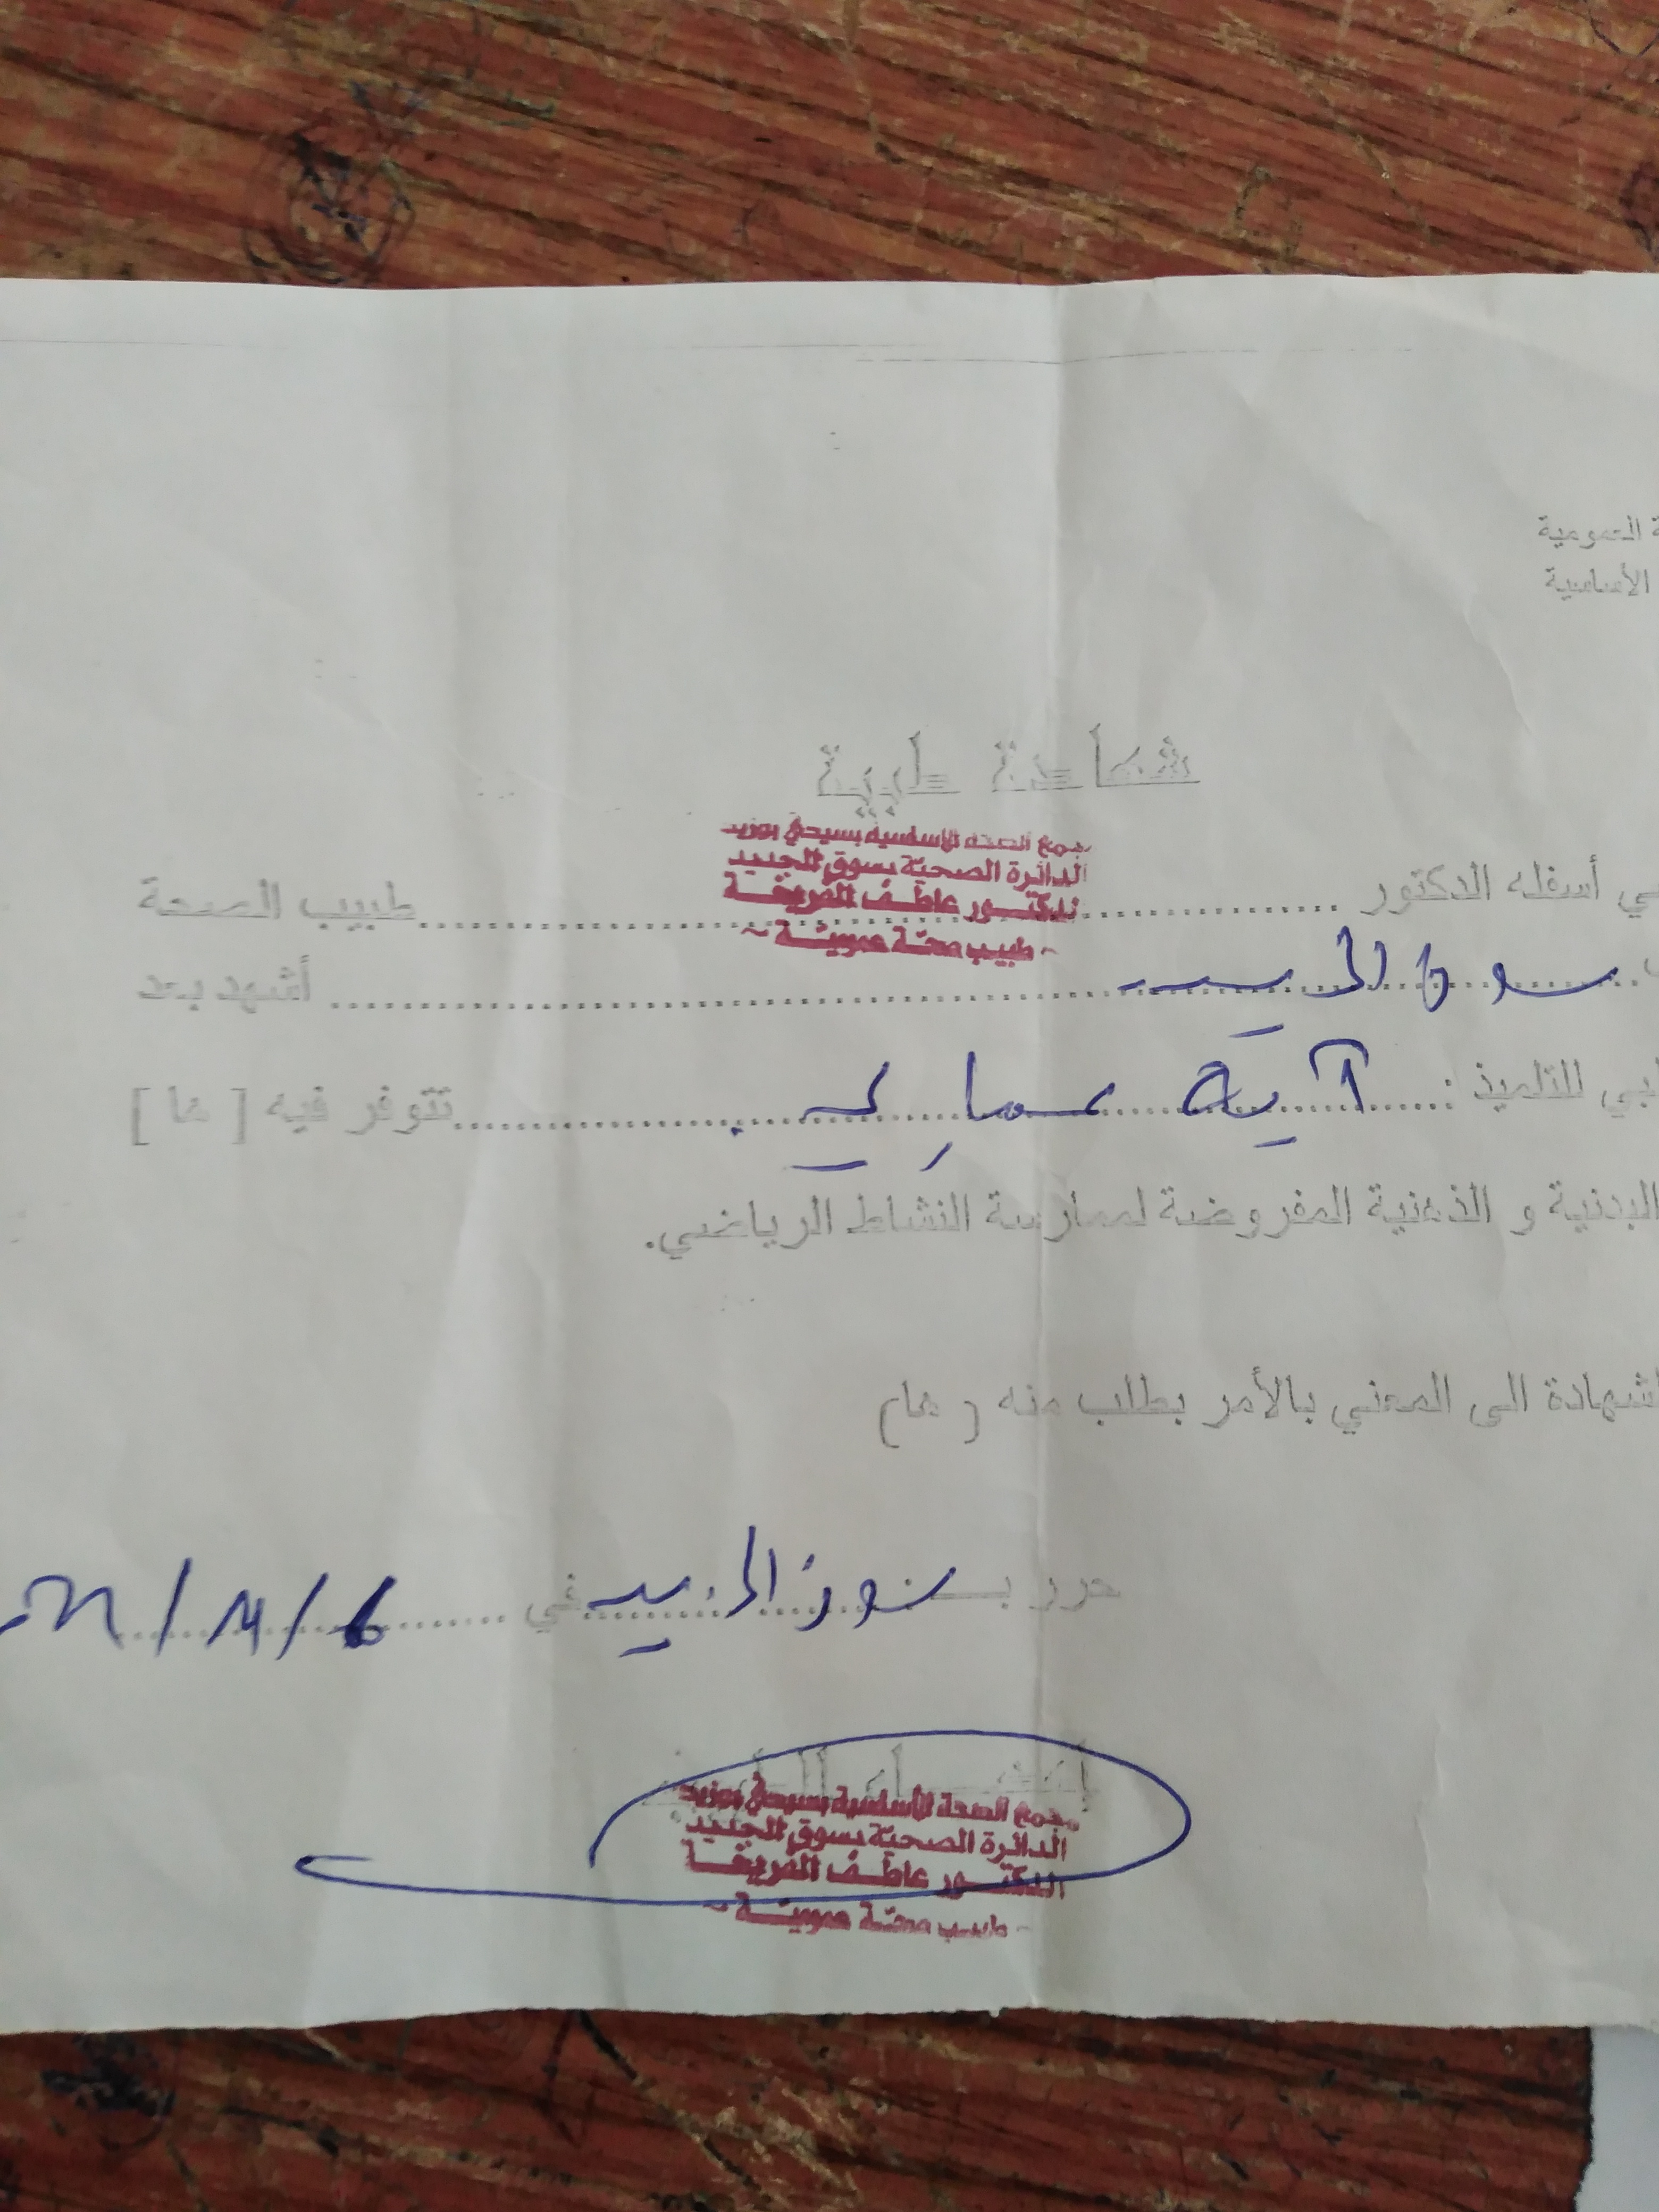 العمومية
الأساسية
شهادة طبية
مجمع الصحة الأساسية بسيدي بوزيد
الدائرة الصحية بسوق الجديد
الدكتور عاطف
طبيب صحة عمومية
أسفله الدكتور .................... طبيب الصحة
سوق الجديد .................... أشهد بعد
للتلميذ : آية عماري .................... تتوفر فيه [ ها ]
البدنية و الذهنية المفروضة لممارسة النشاط الرياضي.
الشهادة الى المعني بالأمر بطلب منه ( ها)
حرر بـ سوق الجديد في 6 / 11 /
مجمع الصحة الأساسية بسيدي بوزيد
الدائرة الصحية بسوق الجديد
الدكتور عاطف
- طبيب صحة عمومية -